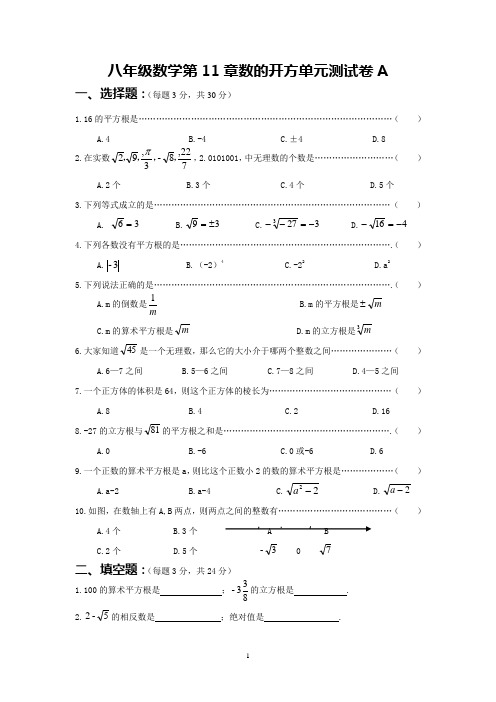 八年级数学第11章数的开方单元测试卷A
一、选择题：（每题3分，共30分）
1.16的平方根是……………………………………………………………（ ）
A.4 B.-4 C.±4 D.8
2.在实数√2，√9，π/3，-√8，22/7，2.0101001，中无理数的个数是……………………（ ）
A.2个 B.3个 C.4个 D.5个
3.下列等式成立的是…………………………………………………………（ ）
A. √6=3 B.√9=±3 C.-∛-27=-3 D.-√16=-4
4.下列各数没有平方根的是………………………………………………….（ ）
A.|-3| B.（-2）⁴ C.-2² D.a²
5.下列说法正确的是………………………………………………………….（ ）
A.m的倒数是1/m B.m的平方根是±√m
C.m的算术平方根是√m D.m的立方根是∛m
6.大家知道√45是一个无理数，那么它的大小介于哪两个整数之间…………………（ ）
A.6—7之间 B.5—6之间 C.7—8之间 D.4—5之间
7.一个正方体的体积是64，则这个正方体的棱长为……………………………………（ ）
A.8 B.4 C.2 D.16
8.-27的立方根与√81的平方根之和是………………………………………………….（ ）
A.0 B.-6 C.0或-6 D.6
9.一个正数的算术平方根是a，则比这个正数小2的数的算术平方根是………………（ ）
A.a-2 B.a-4 C.√a²-2 D.√a-2
10.如图，在数轴上有A,B两点，则两点之间的整数有…………………………………（ ）
A.4个 B.3个 A B
C.2个 D.5个 -√3 0 √7
二、填空题：（每题3分，共24分）
1.100的算术平方根是 ；-3 3/8的立方根是 .
2.2-√5的相反数是 ；绝对值是 .
1